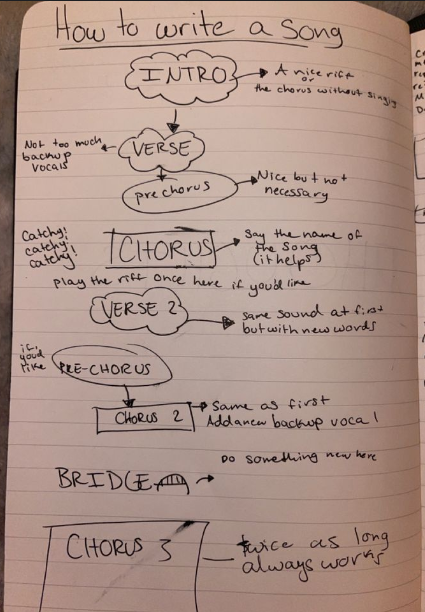 How to write a Song
INTRO
A nice riff
or
the chorus without singing
Not too much
backup
vocals
VERSE
prechorus
Nice but not
necessary
Catchy!
catchy!
catchy!
CHORUS
Say the name of
the song
(it helps)
play the riff once here if you'd like
VERSE 2
same sound at first
but with new words
if
you'd
like
PRE-CHORUS
CHORUS 2
Same as first
Add a new backup vocal
BRIDGE
Do something new here
CHORUS 3
twice as long
always works